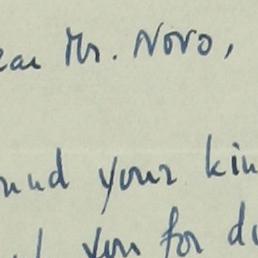 ear Mr. Novo,
und your kin
you for du